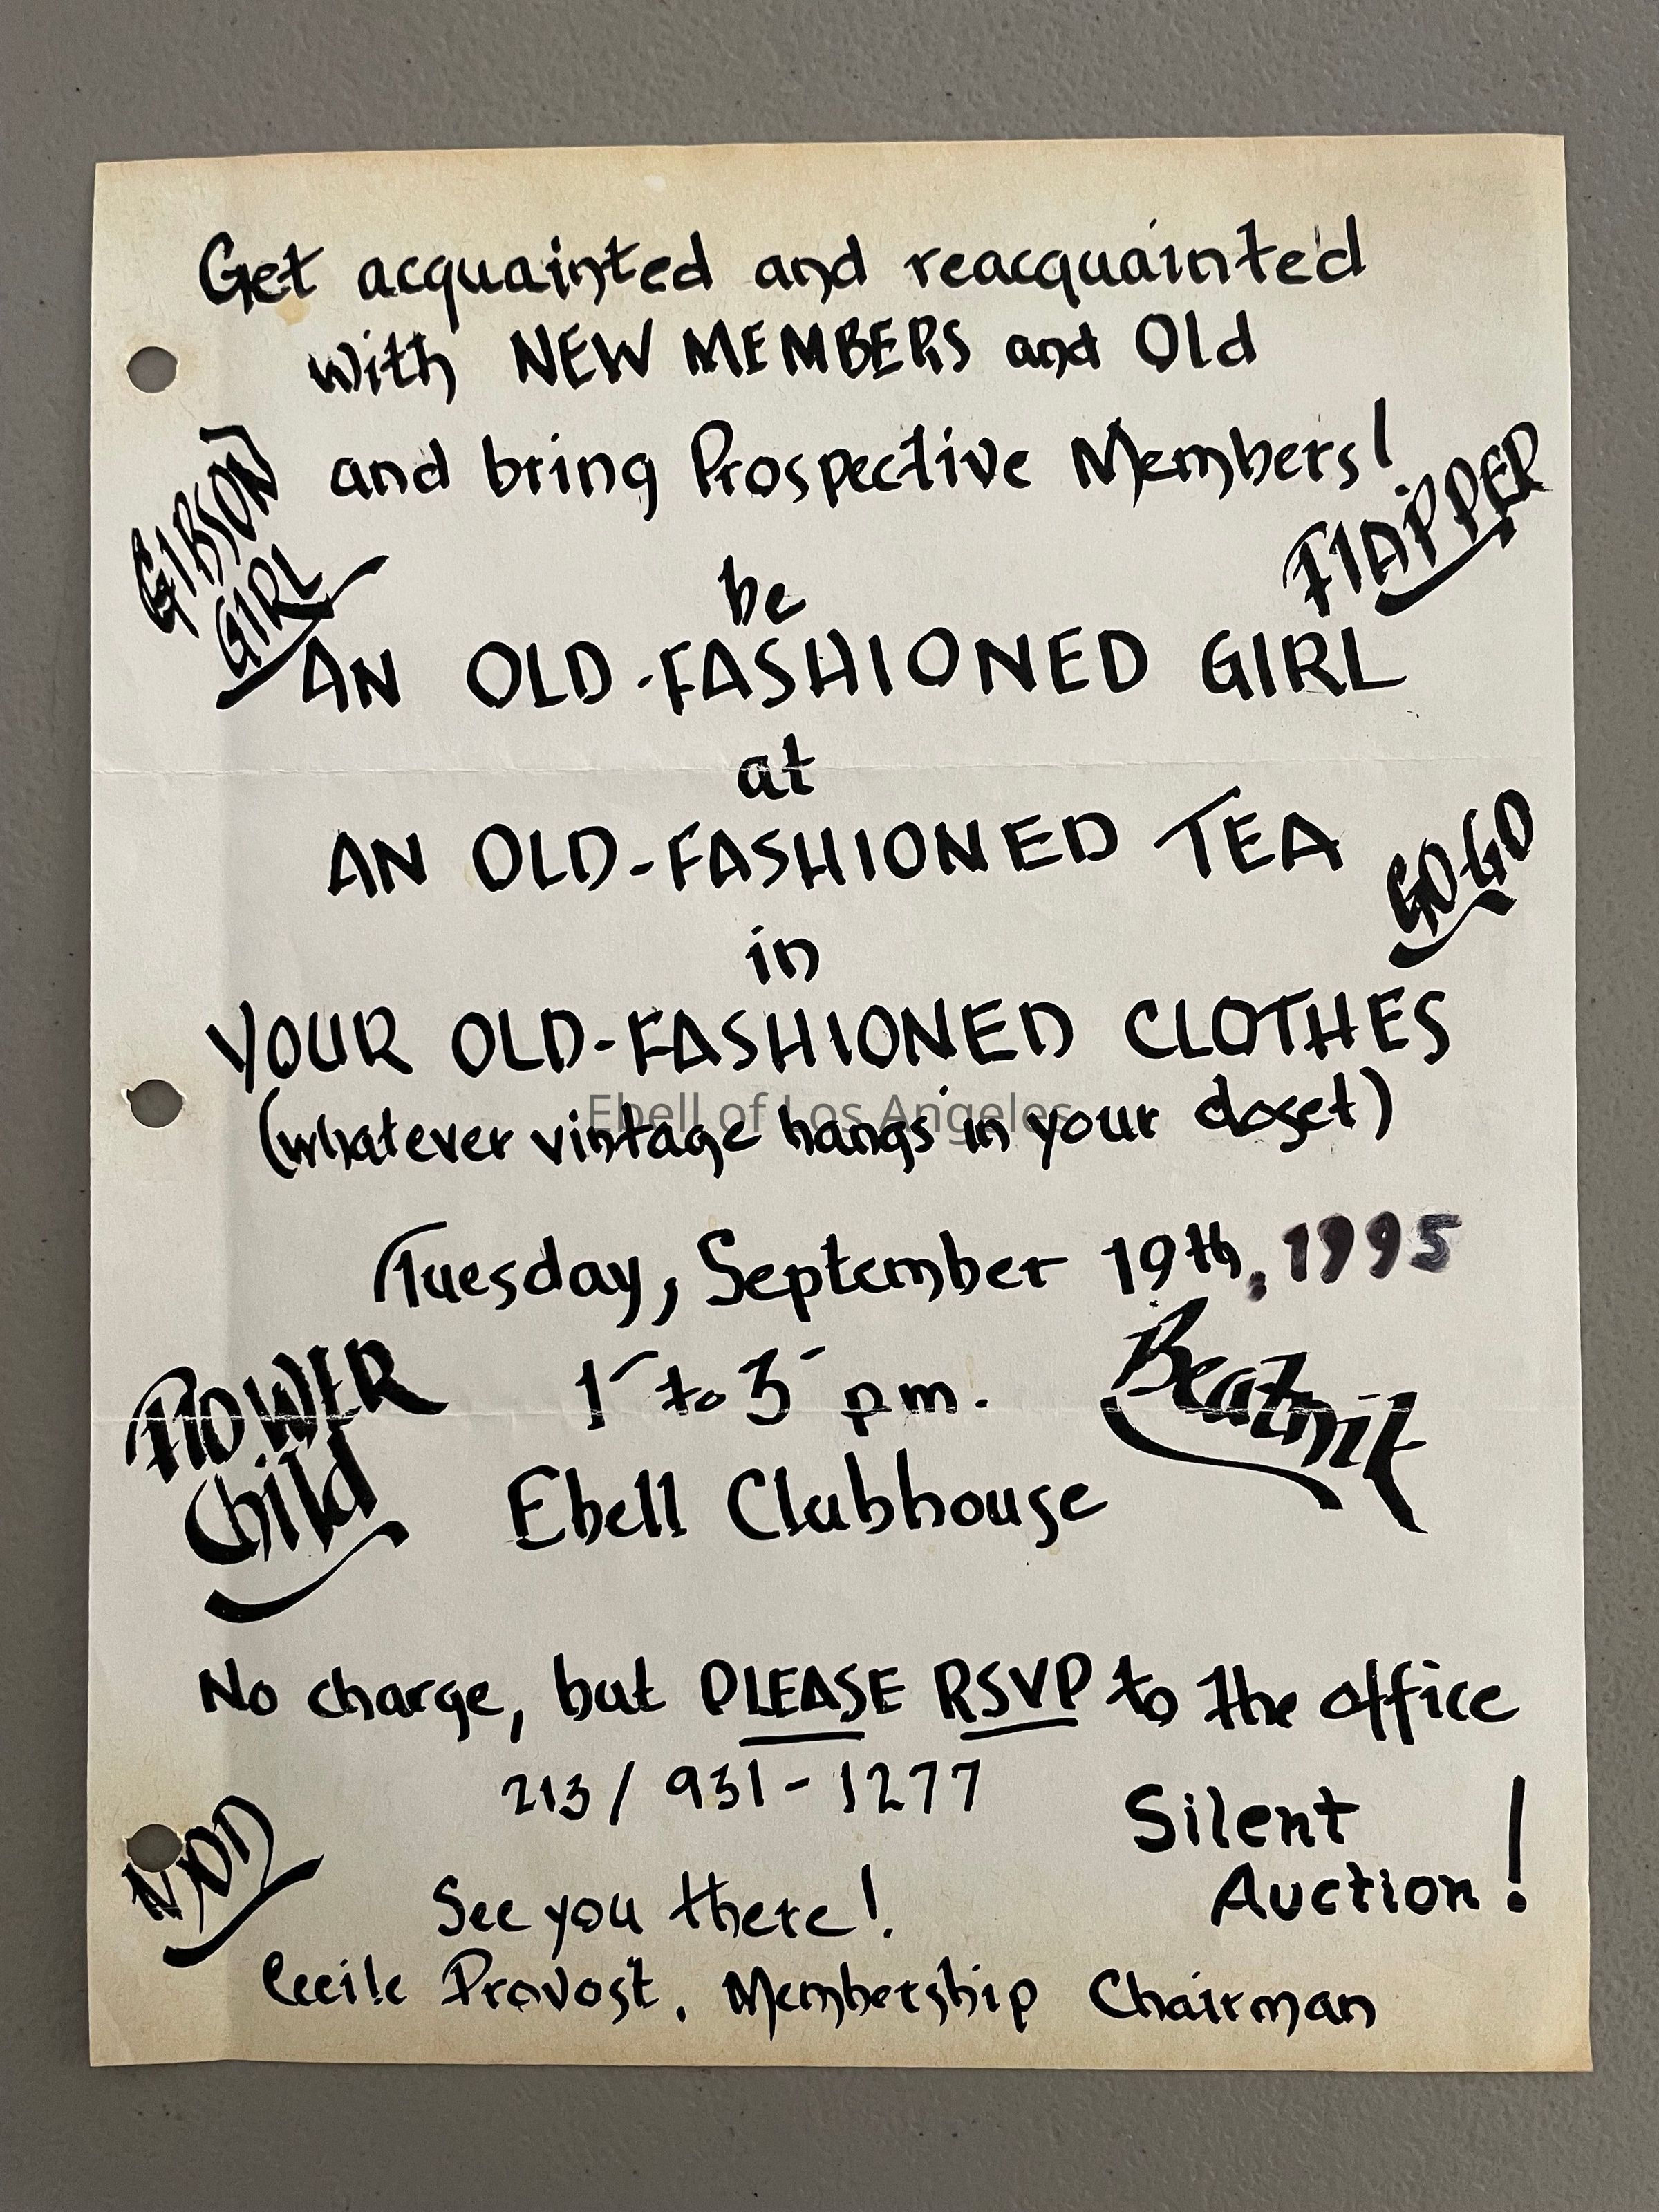 Get acquainted and reacquainted
with NEW MEMBERS and Old
and bring Prospective Members!
GIBSON
GIRL
FLAPPER
be
AN OLD-FASHIONED GIRL
at
AN OLD-FASHIONED TEA
GO-GO
in
YOUR OLD-FASHIONED CLOTHES
(whatever vintage hangs in your closet)
Ebell of Los Angeles
Tuesday, September 19th, 1995
FLOWER
Child
1- to 3- pm.
Beatnik
Ebell Clubhouse
No charge, but PLEASE RSVP to the office
213/931-1277
Silent
Auction!
MOD
See you there!
Cecile Provost, Membership Chairman